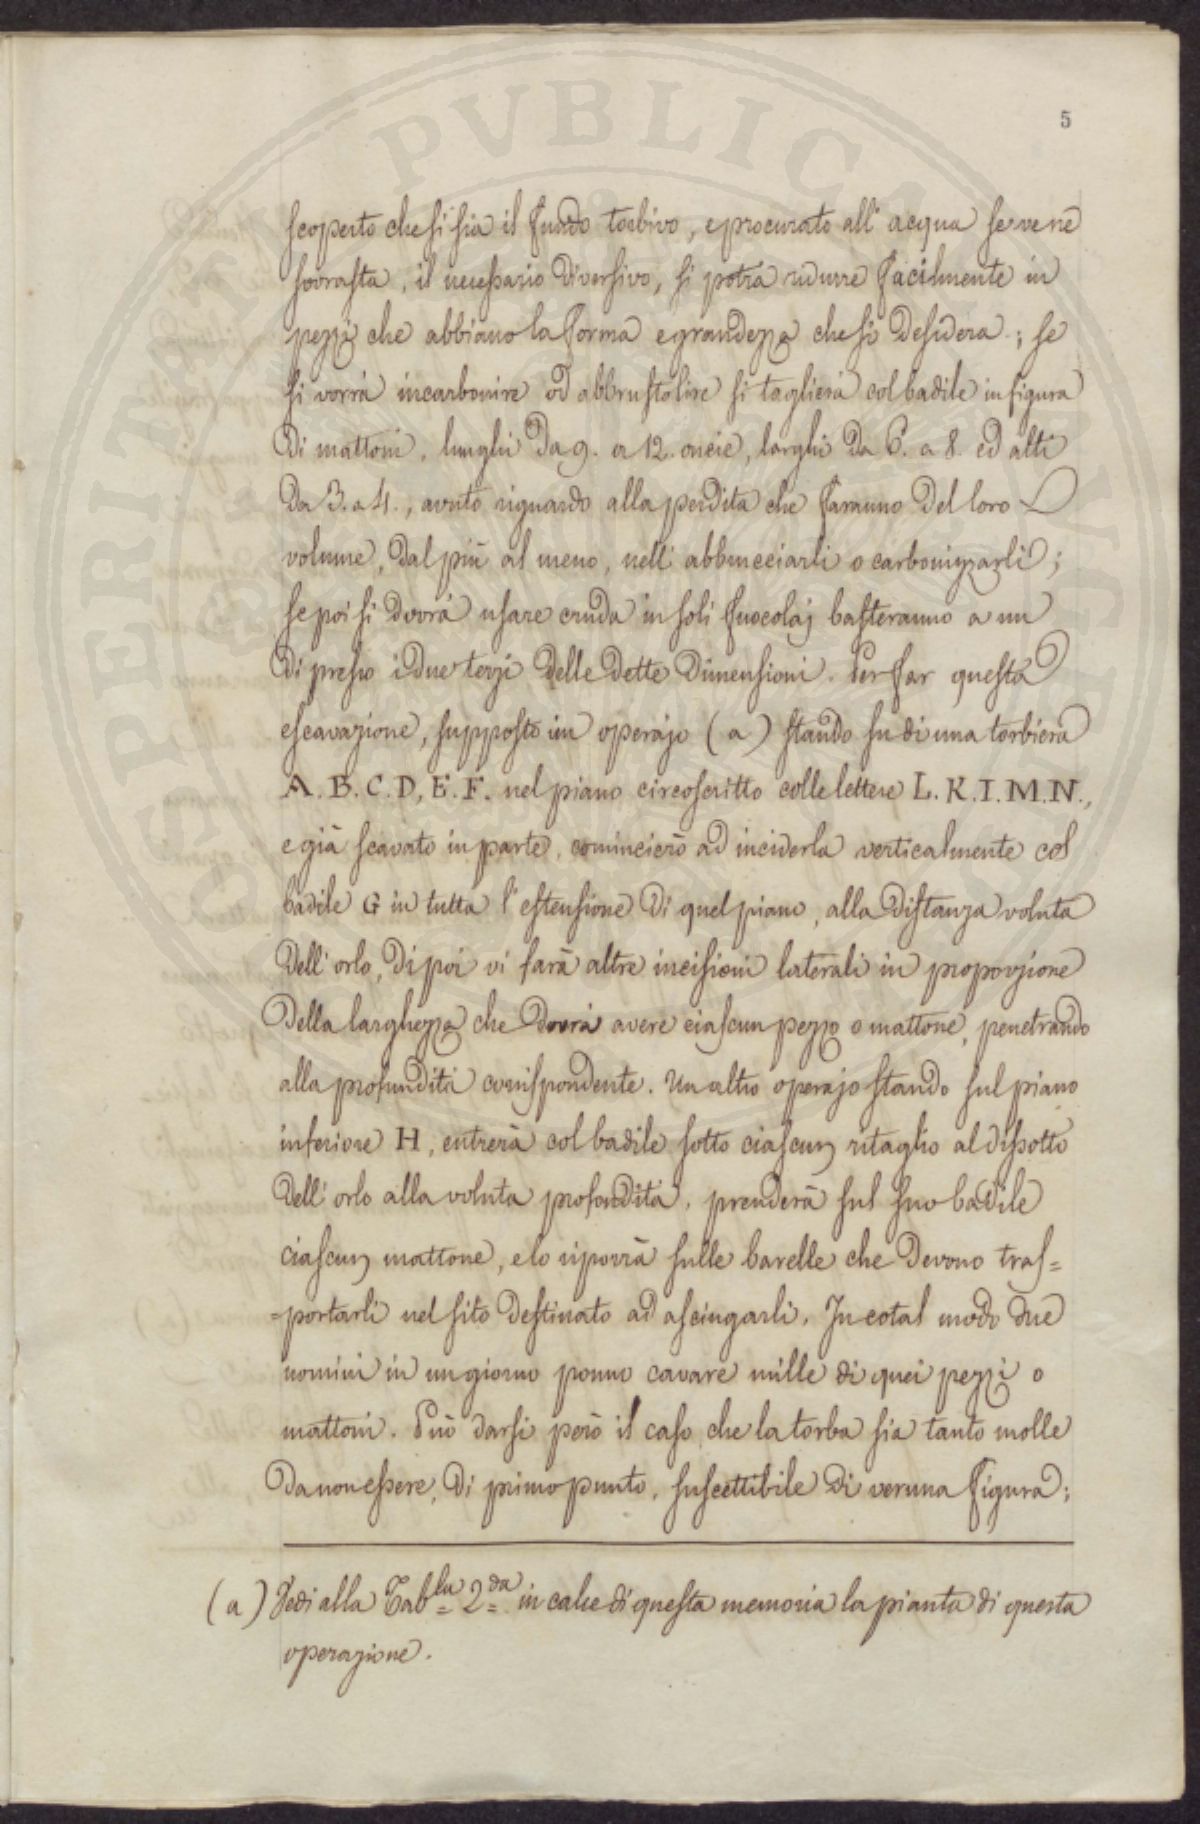 5
scoperto che si sia il fondo torbivo, e procurato all' acqua se ve ne
sovrasta, il necessario diversivo, si potrà ridurre facilmente in
pezzi che abbiano la forma e grandezza che si desidera; se
si vorrà incarbonire od abbrustolire si taglierà col badile in figura
di mattoni, lunghi da 9. a 12. oncie, larghi da 6. a 8. ed alti
da 3. a 4., avuto riguardo alla perdita che faranno del loro
volume, dal più al meno, nell' abbrucciarli o carbonizzarli;
se poi si dovrà usare cruda in soli fuocolaj basteranno a un
di presso i due terzi delle dette dimensioni. Per far questa
escavazione, supposto un operajo (a) stando su di una torbiera
A. B. C. D, E. F. nel piano circoscritto colle lettere L. K. I. M. N.,
e già scavato in parte, comincierà ad inciderla verticalmente col
badile G in tutta l' estensione di quel piano, alla distanza voluta
dell' orlo, di poi vi farà altre incisioni laterali in proporzione
della larghezza che dovrà avere ciascun pezzo o mattone, penetrando
alla profondità corrispondente. Un altro operajo stando sul piano
inferiore H, entrerà col badile sotto ciascun ritaglio al dissotto
dell' orlo alla voluta profondità, prenderà sul suo badile
ciascun mattone, e lo riporrà sulle barelle che devono tras=
=portarli nel sito destinato ad asciugarli. In cotal modo due
uomini in un giorno ponno cavare mille di quei pezzi o
mattoni. Può darsi però il caso che la torba sia tanto molle
da non essere, di primo punto, suscettibile di veruna figura;
(a) Vedi alla Tab.la 2.da in calce di questa memoria la pianta di questa
operazione.